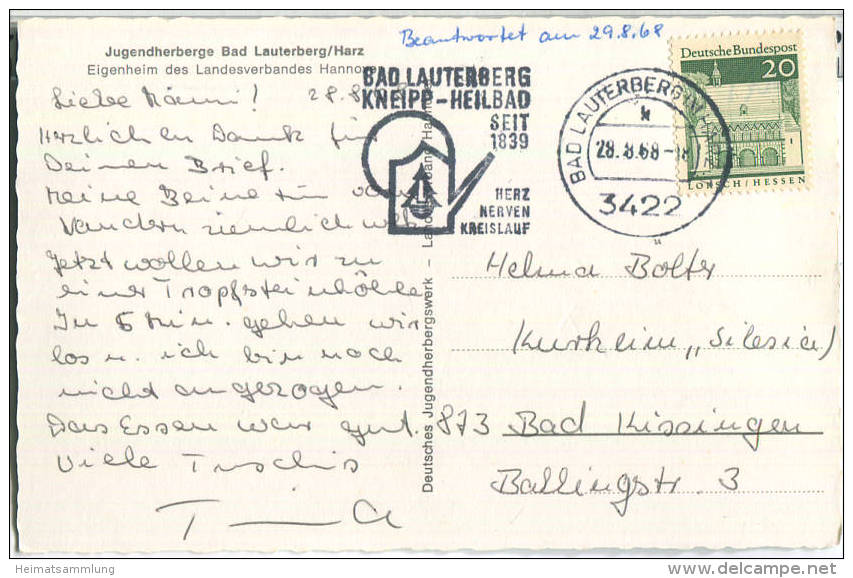 Beantwortet am 29.8.68
Jugendherberge Bad Lauterberg/Harz
Eigenheim des Landesverbandes Hannover
Liebe Mämi! 28.8.
Herzlichen Dank für
Deinen Brief.
Meine Beine tun vom
Wandern ziemlich weh.
Jetzt wollen wir zu
einer Tropfsteinhöhle
In 5 Min. gehen wir
los u. ich bin noch
nicht angezogen.
Das Essen war gut.
Viele
BAD LAUTERBERG
KNEIPP-HEILBAD
SEIT
1839
HERZ
NERVEN
KREISLAUF
BAD LAUTERBERG
28.8.68-18
3422
Deutsche Bundespost
20
LORSCH / HESSEN
Deutsches Jugendherbergswerk – Landesverband Hannover
Helma Bolter
Kurheim „Silesia"
873 Bad Kissingen
Ballingstr. 3
Heimatsammlung
delcampe.net